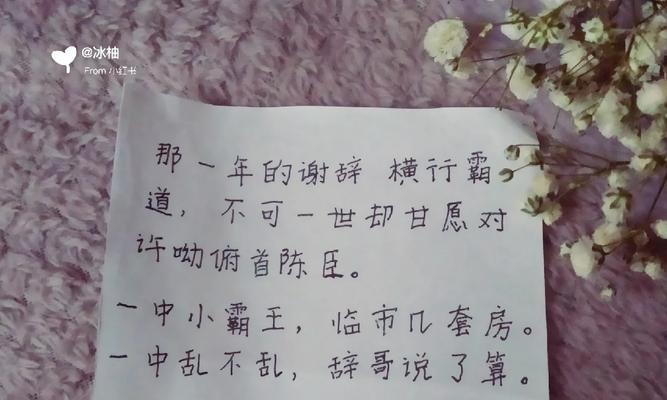 @冰柚
From 小红书
那一年的谢辞 横行霸
道，不可一世却甘愿对
许呦俯首陈臣。
一中小霸王，临市几套房。
一中乱不乱，辞哥说了算。